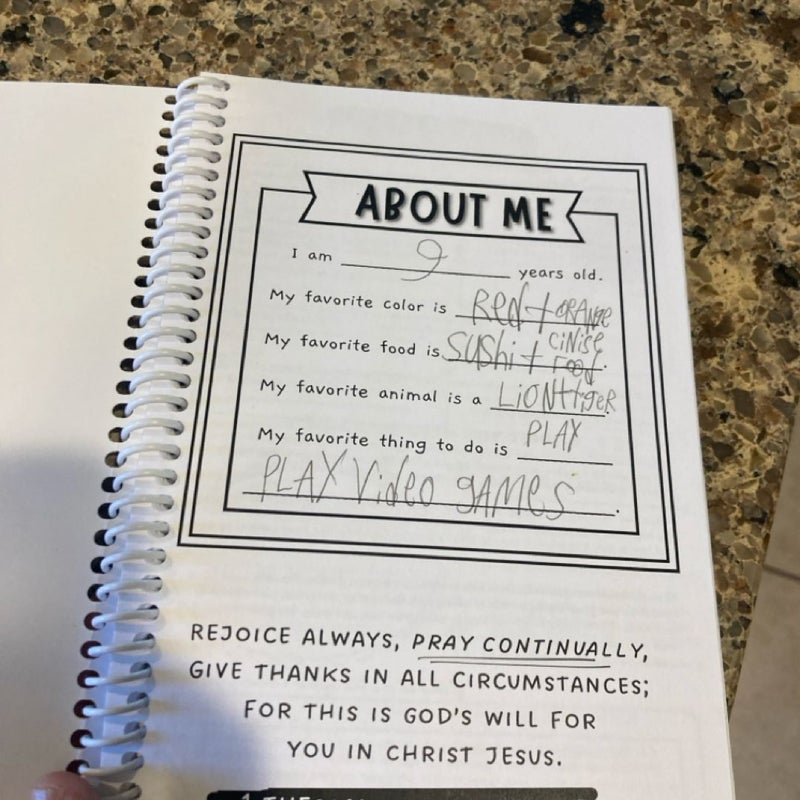 ABOUT ME
I am 9 years old.
My favorite color is Red + ORANGE
My favorite food is SUShi + CiNiSe FOOd.
My favorite animal is a LiON+tigeR
My favorite thing to do is PLAY
PLAY Video gAMeS.
REJOICE ALWAYS, PRAY CONTINUALLY,
GIVE THANKS IN ALL CIRCUMSTANCES;
FOR THIS IS GOD'S WILL FOR
YOU IN CHRIST JESUS.